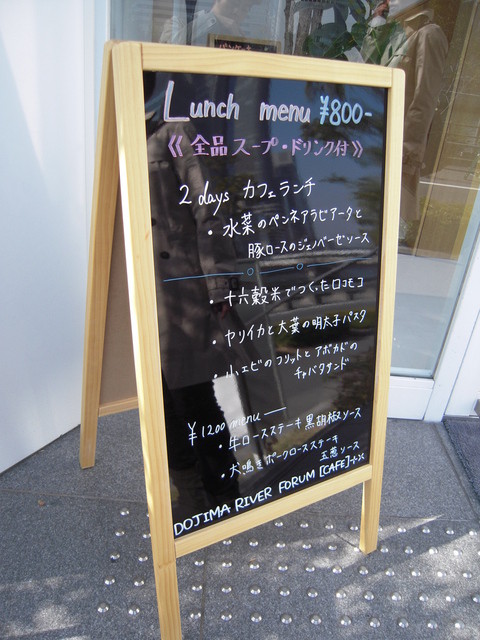 Lunch menu ¥800-
《全品スープ・ドリンク付》
2 days カフェランチ
・水菜のペンネアラビアータと
豚ロースのジェノバーゼソース
・十六穀米でつくったロコモコ
・ヤリイカと大葉の明太子パスタ
・小エビのフリットとアボカドの
チャバタサンド
¥1200 menu
・牛ロースステーキ黒胡椒ソース
・犬鳴きポークロースステーキ
玉葱ソース
DOJIMA RIVER FORUM [CAFE]